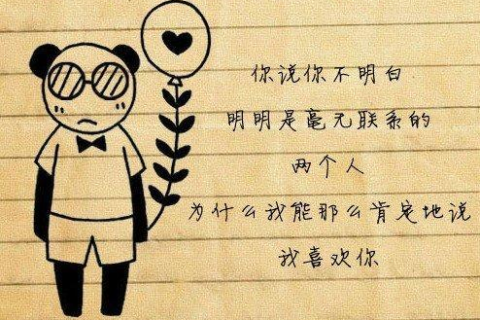 你说你不明白
明明是毫无联系的
两个人
为什么我能那么肯定地说
我喜欢你